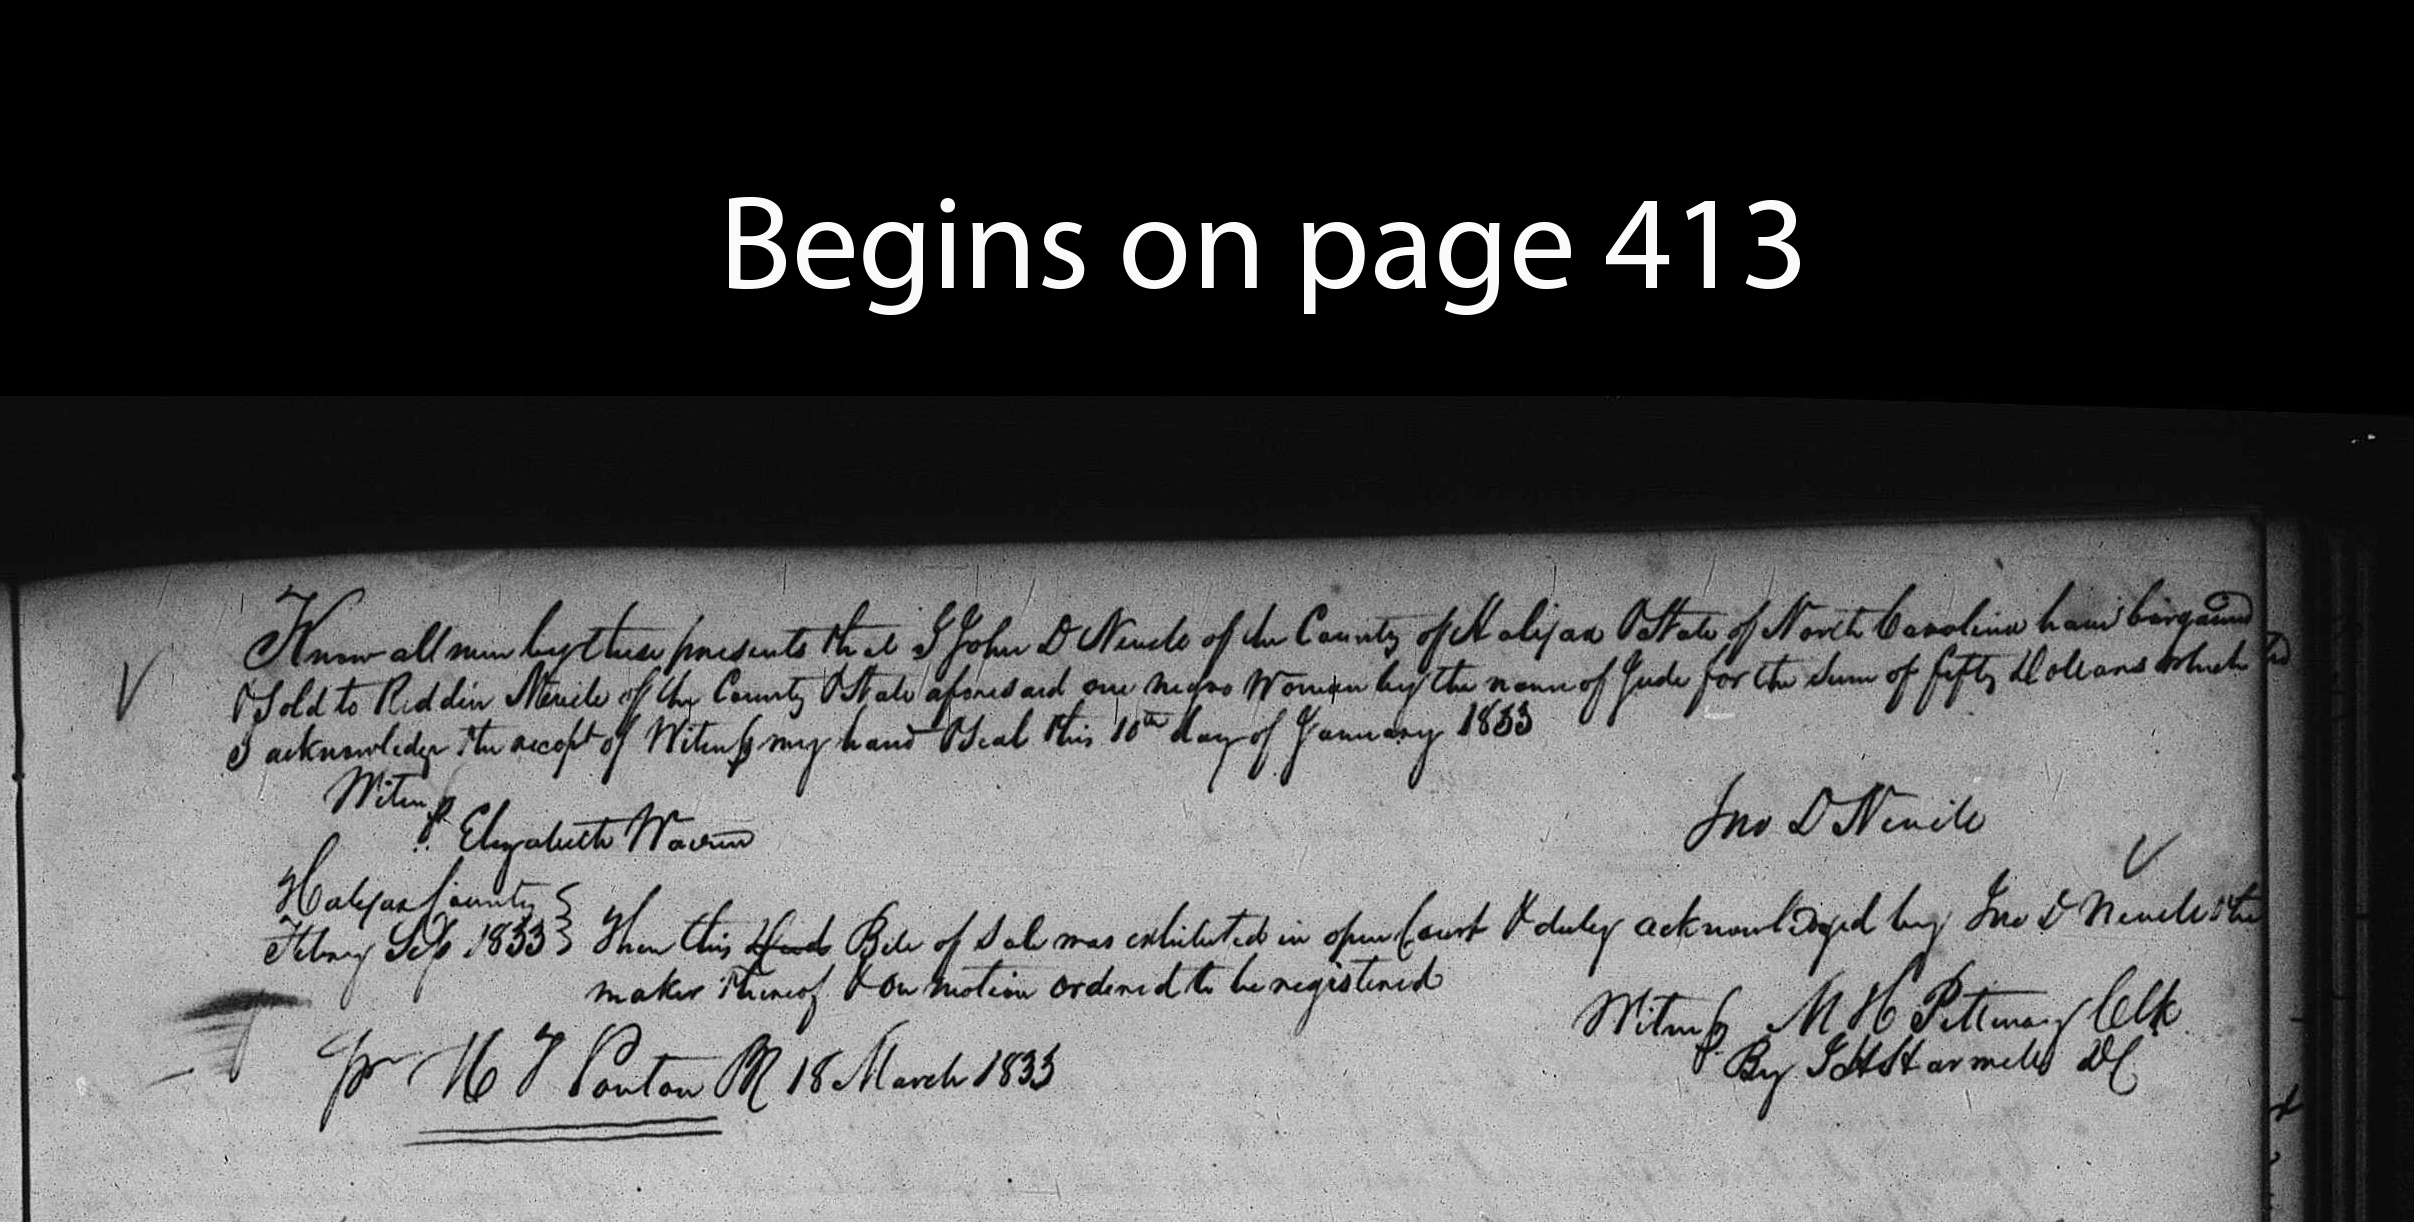 Begins on page 413
Know all men by these presents that I John D Nevile of the County of Halifax & State of North Carolina have bargained
& Sold to Reddin Nevile of the County & State aforesaid one negro Woman by the name of Jude for the Sum of fifty Dollars which
I acknowledge the recept of Witness my hand & Seal this 10th day of January 1833
Witness
Elizabeth Warren
Jno D Nevile
Halifax County
Febray Sess 1833 } Then this Deed Bill of Sale was exhibited in open Court & duly acknowledged by Jno D Nevile the
maker thereof & on motion ordered to be registered
Witness M H Pettway Clk
By DC
pr H J Ponton PR 18 March 1833